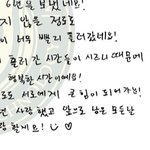 6년을 보냈네요!
지 않을 정도로
이 너무 빨리 흘러갔네요!
흘러간 시간들이 시르니 때문에
행복한 시간이에요!
도 서로에게 큰 힘이 되어가
사랑했고 앞으로 남은 모든 날
할게요!